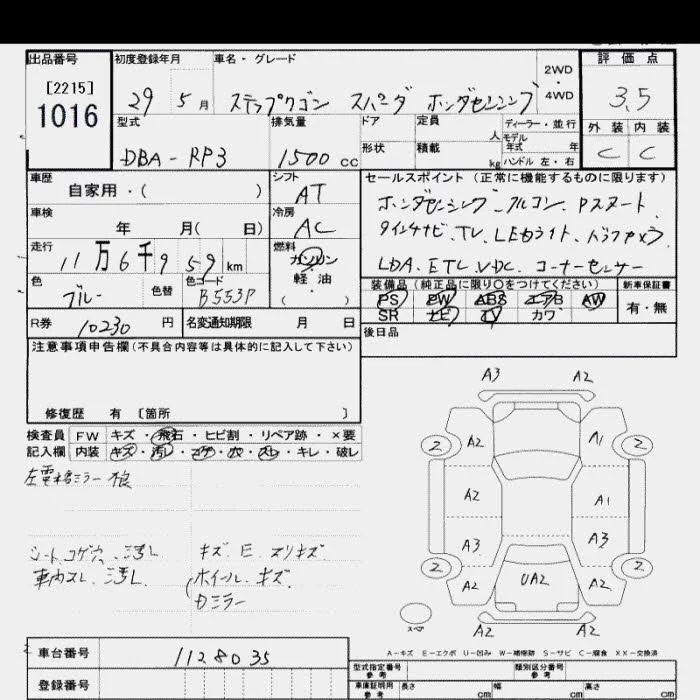 出品番号
[2215]
1016
初度登録年月
29 5 月
車名・グレード
ステップワゴン スパーダ ホンダセンシング
2WD
・
4WD
評価点
3.5
外装 内装
C C
型式
DBA-RP3
排気量
1500 cc
ドア
形状
定員
人
積載
kg
ディーラー・並行
モデル
年式 年
ハンドル 左・右
車歴
自家用・( )
シフト
AT
車検
年 月( 日)
冷房
AC
走行
11万6千959 km
燃料
ガソリン
軽油
( )
色
ブルー
色替
色コード
B553P
R券
10230 円
名変通知期限 月 日
セールスポイント (正常に機能するものに限ります)
ホンダセンシング、フルコン、Pスタート、
ナビ、TV、LEDライト、バックカメラ
LDA、ETC、VDC、コーナーセンサー
装備品 (純正品に限り〇をつけてください)
PS PW ABS エアB AW
SR ナビ TV カワ
新車保証書
有・無
後日品
注意事項申告欄 (不具合内容等は具体的に記入して下さい)
修復歴 有 [箇所 ]
検査員 FW キズ・飛石・ヒビ割・リペア跡・×要
記入欄 内装 キズ・汚レ・コゲ・穴・スレ・キレ・破レ
シートコゲ穴、汚れ
車内スレ、汚れ
キズ E スリキズ
ホイールキズ
ミラー
A3 A2
2 A2 A1 2
A2 A1
A3 A3
2 A2 UA2 A2 2
A2 A2
スペア
A-キズ E-エクボ U-凹み W-補修跡 S-サビ C-腐食 XX-交換済
車台番号 1128035
登録番号
型式指定番号
参考
類別区分番号
参考
車庫証明用
参考
長さ cm 幅 cm 高さ cm